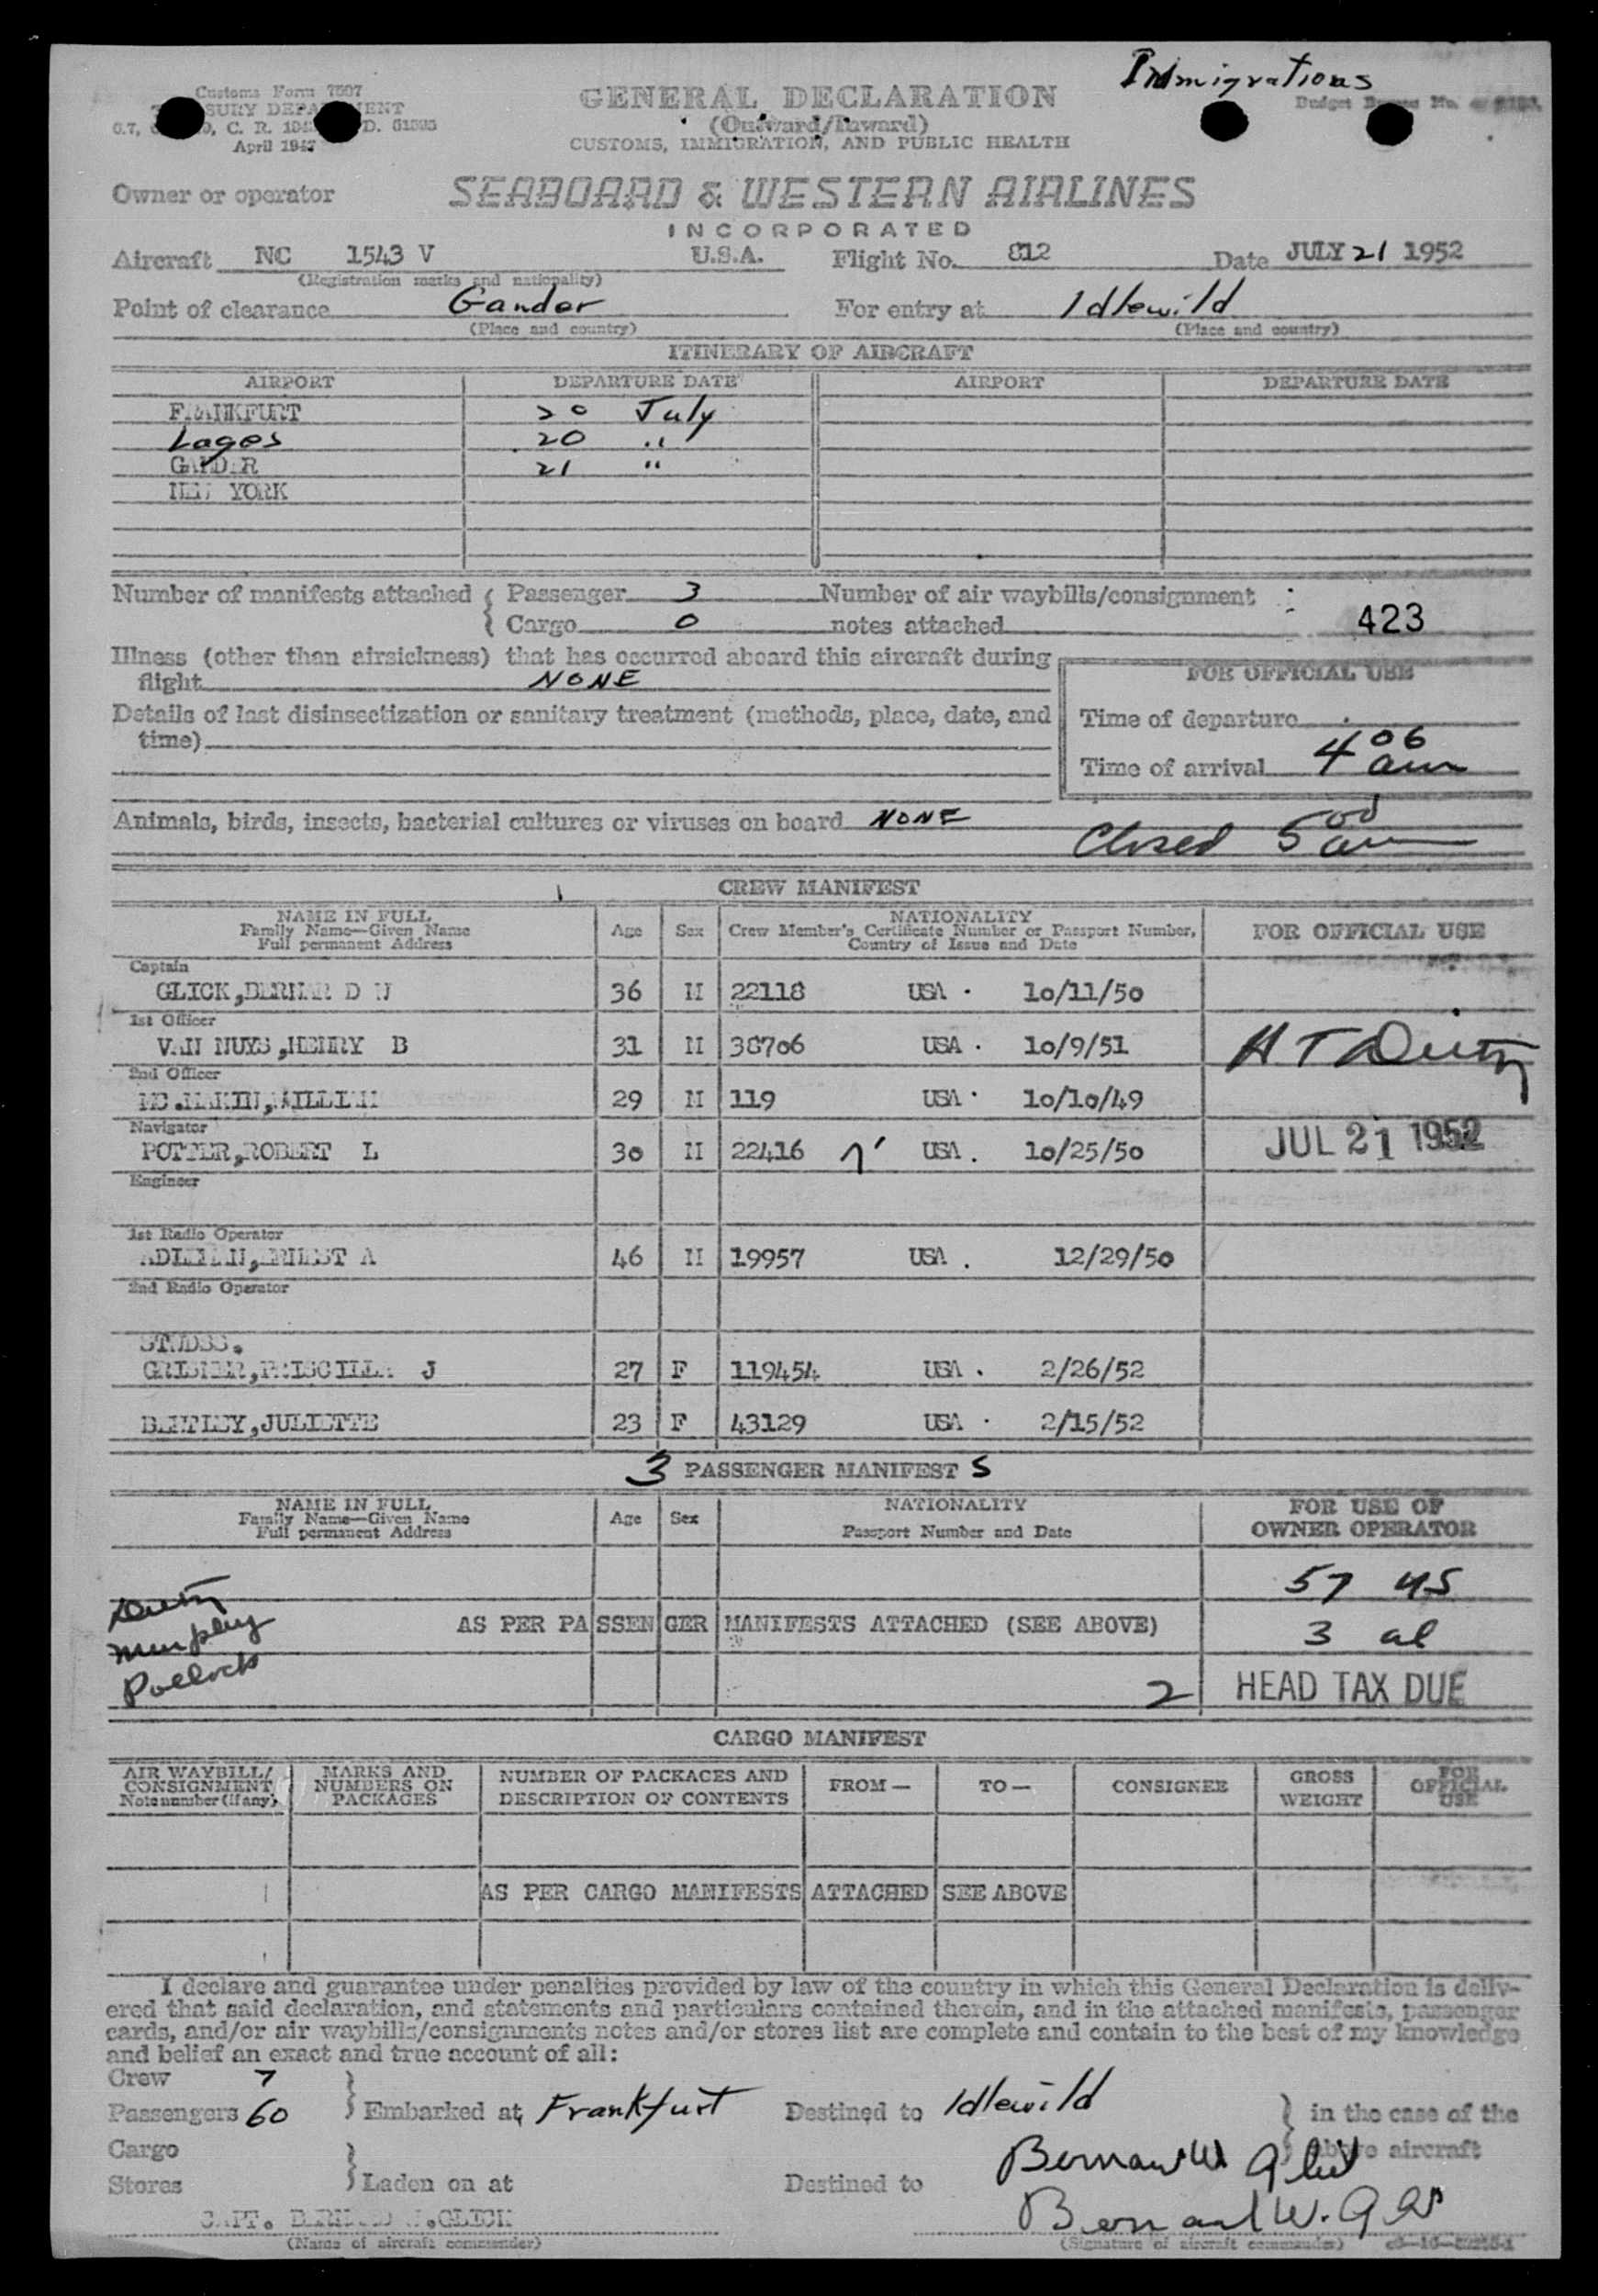 Immigrations
Customs Form 7507
April 1947
GENERAL DECLARATION
(Outward/Inward)
CUSTOMS, IMMIGRATION, AND PUBLIC HEALTH
Owner or operator SEABOARD & WESTERN AIRLINES
INCORPORATED
Aircraft NC 1543 V U.S.A. Flight No. 812 Date JULY 21 1952
(Registration marks and nationality)
Point of clearance Gander For entry at Idlewild
(Place and country) (Place and country)
ITINERARY OF AIRCRAFT
AIRPORT DEPARTURE DATE AIRPORT DEPARTURE DATE
FRANKFURT 20 July
Lages 20 "
GANDER 21 "
NEW YORK
Number of manifests attached { Passenger 3 Number of air waybills/consignment :
{ Cargo 0 notes attached 423
Illness (other than airsickness) that has occurred aboard this aircraft during
flight NONE
FOR OFFICIAL USE
Details of last disinsectization or sanitary treatment (methods, place, date, and
time)
Time of departure
Time of arrival 4 06 am
Animals, birds, insects, bacterial cultures or viruses on board NONE
Closed 5 00 am
CREW MANIFEST
NAME IN FULL
Family Name—Given Name
Full permanent Address
Age Sex
NATIONALITY
Crew Member's Certificate Number or Passport Number,
Country of Issue and Date
FOR OFFICIAL USE
Captain
GLICK,BERNAR D W 36 M 22118 USA . 10/11/50
1st Officer
VAN NUYS,HENRY B 31 M 38706 USA . 10/9/51
2nd Officer
29 M 119 USA . 10/10/49
Navigator
POTTER,ROBERT L 30 M 22416 USA . 10/25/50
JUL 21 1952
Engineer
1st Radio Operator
46 M 19957 USA . 12/29/50
2nd Radio Operator
STWDSS.
PRISCILLA J 27 F 119454 USA . 2/26/52
JULIETTE 23 F 43129 USA . 2/15/52
3 PASSENGER MANIFEST S
NAME IN FULL
Family Name—Given Name
Full permanent Address
Age Sex
NATIONALITY
Passport Number and Date
FOR USE OF
OWNER OPERATOR
57 US
Murphy AS PER PASSENGER MANIFESTS ATTACHED (SEE ABOVE) 3 al
Pollock
2 HEAD TAX DUE
CARGO MANIFEST
AIR WAYBILL/
CONSIGNMENT
Note number (if any)
MARKS AND
NUMBERS ON
PACKAGES
NUMBER OF PACKAGES AND
DESCRIPTION OF CONTENTS
FROM— TO— CONSIGNEE
GROSS
WEIGHT
FOR
OFFICIAL
USE
AS PER CARGO MANIFESTS ATTACHED SEE ABOVE
I declare and guarantee under penalties provided by law of the country in which this General Declaration is deliv-
ered that said declaration, and statements and particulars contained therein, and in the attached manifests, passenger
cards, and/or air waybills/consignments notes and/or stores list are complete and contain to the best of my knowledge
and belief an exact and true account of all:
Crew 7
Passengers 60 } Embarked at Frankfurt Destined to Idlewild } in the case of the
above aircraft
Cargo
Stores } Laden on at Destined to
Bernard W Glick
CAPT. BERNARD W.GLICK Bernard W. Glick
(Name of aircraft commander) (Signature of aircraft commander)